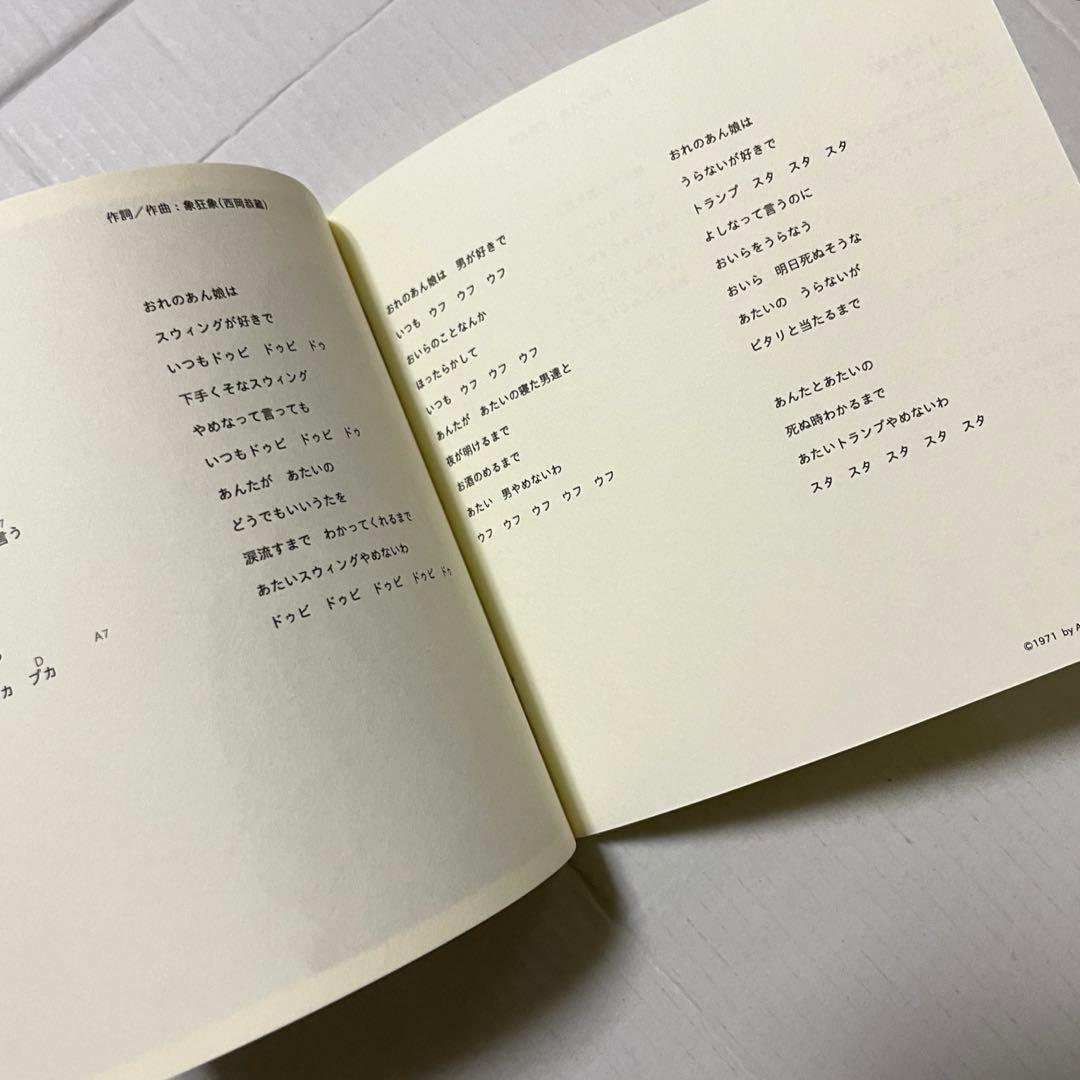 作詞／作曲：象狂象(西岡恭蔵)
言う
A7
D
カ プカ
おれのあん娘は
スウィングが好きで
いつもドゥビ ドゥビ ドゥ
下手くそなスウィング
やめなって言っても
いつもドゥビ ドゥビ ドゥ
あんたが あたいの
どうでもいいうたを
涙流すまで わかってくれるまで
あたいスウィングやめないわ
ドゥビ ドゥビ ドゥビ ドゥビ ドゥ
おれのあん娘は 男が好きで
いつも ウフ ウフ ウフ
おいらのことなんか
ほったらかして
いつも ウフ ウフ ウフ
あんたが あたいの寝た男達と
夜が明けるまで
お酒のめるまで
あたい 男やめないわ
ウフ ウフ ウフ ウフ ウフ
おれのあん娘は
うらないが好きで
トランプ スタ スタ スタ
よしなって言うのに
おいらをうらなう
おいら 明日死ぬそうな
あたいの うらないが
ピタリと当たるまで
あんたとあたいの
死ぬ時わかるまで
あたいトランプやめないわ
スタ スタ スタ スタ スタ
©1971 by A